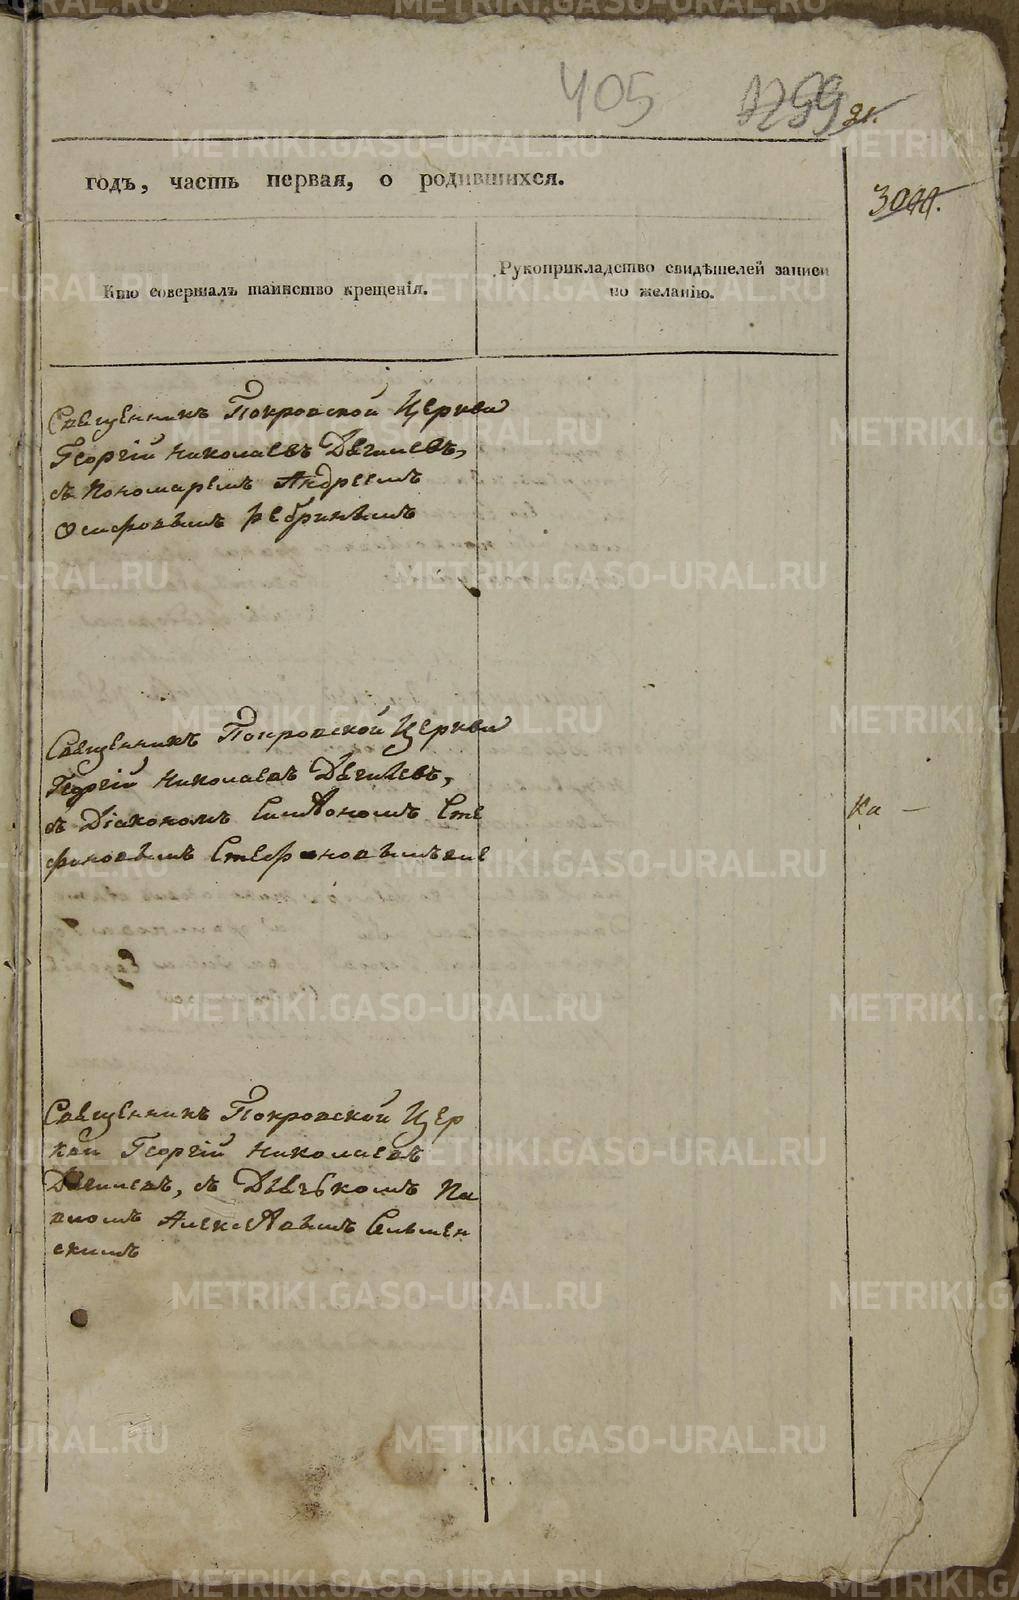 405 1299 91.
годъ, часть первая, о родившихся.
3044.
Кто совершалъ таинство крещенія.
Рукоприкладство свидѣтелей записи
по желанію.
Священникъ Покровской Церкви
Георгій Николаевъ Дягилевъ,
съ Пономаремъ Андреемъ
Осиповымъ Ребринымъ
Священникъ Покровской Церкви
Георгій Николаевъ Дягилевъ,
съ Діакономъ Сте
Ка —
Священникъ Покровской Цер
кви Георгій Николаевъ
Дягилевъ, съ Дьячькомъ Па
вломъ Алексѣевымъ Сельмен
скимъ
METRIKI.GASO-URAL.RU